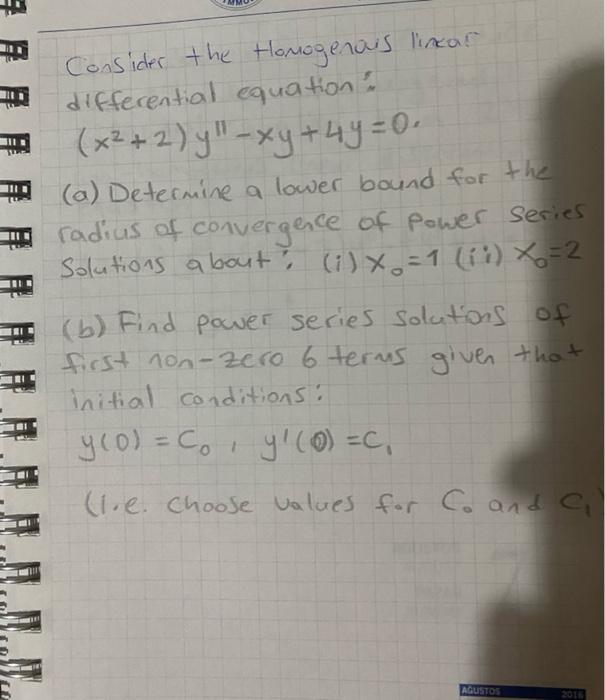 Consider the Homogenous linear
differential equation:
(x²+2)y"-xy+4y=0.
(a) Determine a lower bound for the
radius of convergence of power series
Solutions about: (i) x₀=1 (ii) x₀=2
(b) Find power series solutions of
first non-zero 6 terms given that
initial conditions:
y(0)=C₀, y'(0)=C₁
(I.e. choose values for C₀ and C₁
AĞUSTOS 2016